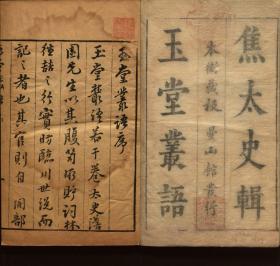 焦太史輯
本衙藏板 曼山館發行
玉堂叢語
玉堂叢語序
玉堂叢語若干卷太史澹
園先生以其腹笥所貯詞林
往喆之行實昉臨川世說而
記之者也其官則自閣部